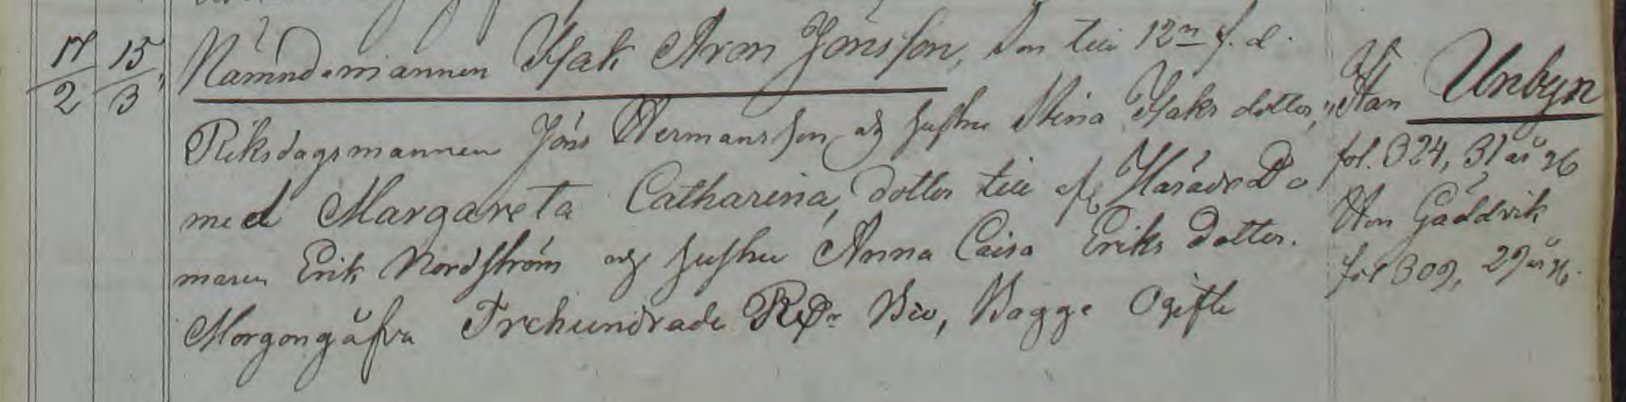 17/2 15/3, Nämndemannen Isak Aron Jönsson, Son till 12n f. d.
Riksdagsmannen Jöns Hermansson och hustru Stina Isaks dotter,
med Margareta Catharina, dotter till Härads Do
maren Erik Nordström och hustru Anna Caisa Eriks dotter.
Morgongåfva Trehundrade RDr Bco, Bägge Ogifte
Han Unbyn
fol. 324, 31 år
Hon Gäddvik
fol 309, 29 år